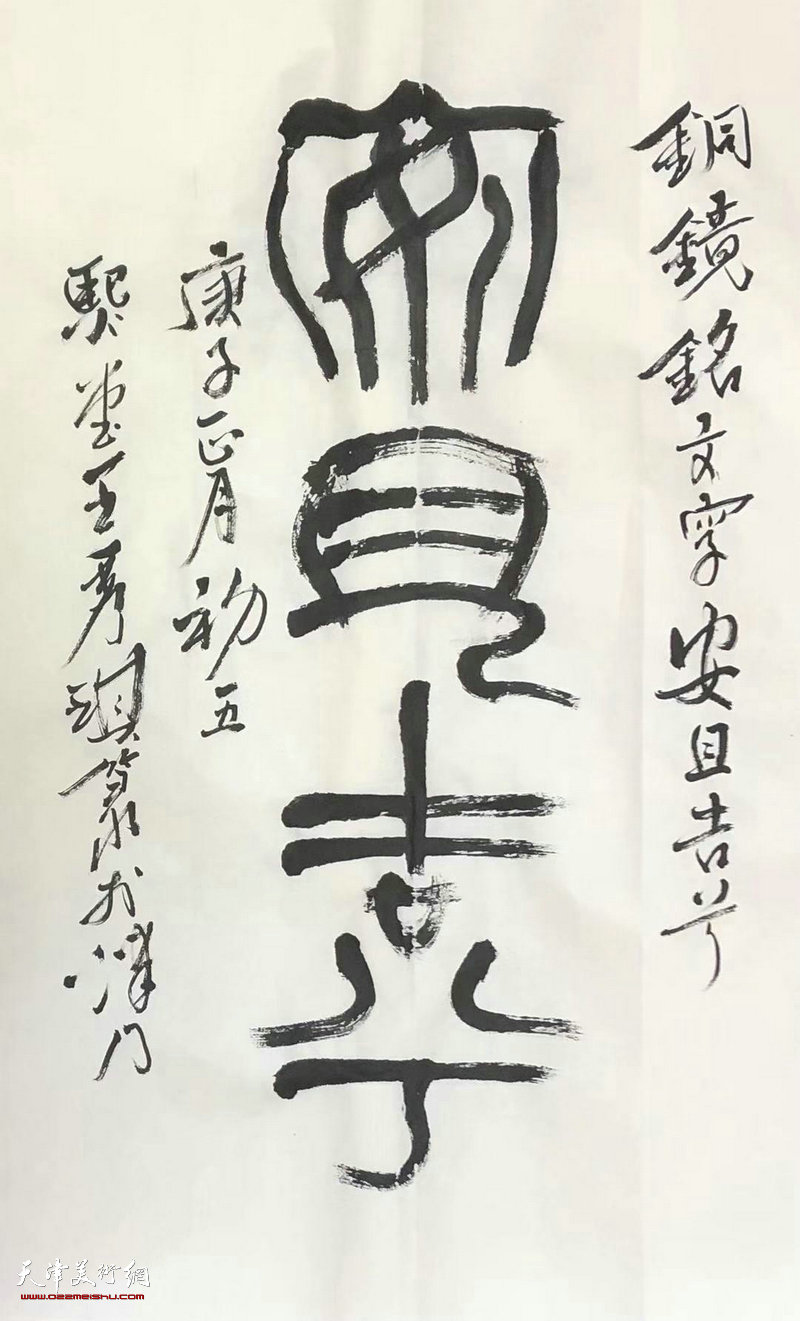 銅鏡銘文字安且吉兮
安且吉兮
庚子正月初五
熙堂王秀琪篆於津門
天津美術網
www.022meishu.com